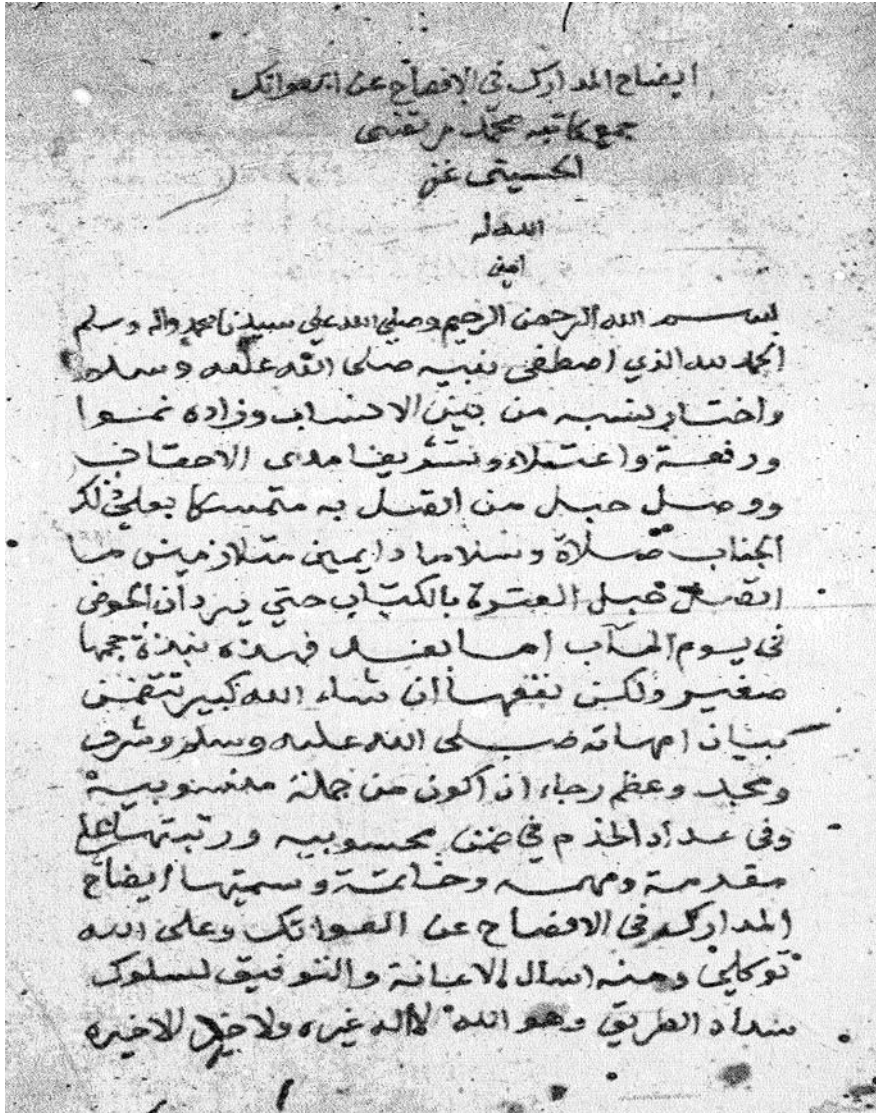 ايضاح المدارك في الافصاح عن العواتك
جمع كاتبه محمد مرتضى
الحسيني غفر
الله له
امين
بسم الله الرحمن الرحيم وصلى الله على سيدنا محمد واله وسلم
الحمد لله الذي اصطفى نبيه صلى الله عليه وسلم
واختار نسبه من بين الانساب وزاده نموا
ورفعة واعتلاء وتشريفا مدى الاحقاب
ووصل حبل من اتصل به متمسكا بعلي ذلك
الجناب صلاة وسلاما دايمين متلازمين ما
اتصل حبل العترة بالكتاب حتي يردان الحوض
في يوم المآب اما بعد فهذه نبذة حجمها
صغير ولكن نفعها ان شاء الله كبير تتضمن
بيان امهاته صلى الله عليه وسلم وشرف
ومجد وعظم رجاء ان اكون من جملة منسوبيه
وفى عداد الخدم في ضمن محسوبيه ورتبتها على
مقدمة ومهمه وخاتمة وسميتها ايضاح
المدارك في الافصاح عن العواتك وعلى الله
توكلي ومنه اسال الاعانة والتوفيق لسلوك
سداد الطريق وهو الله لا اله غيره ولا خير الا خيره